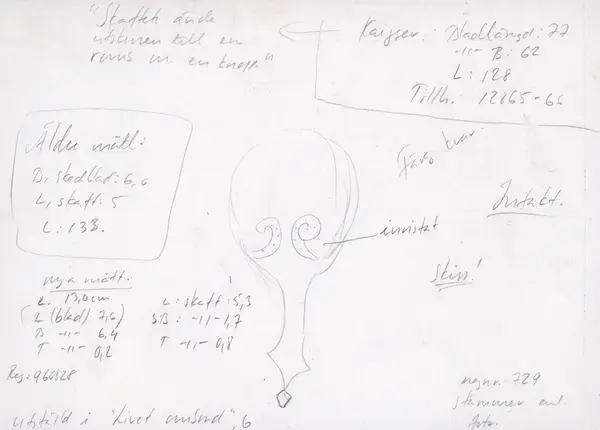 "Skaftets ände
utskuren till en
romb m en knopp"
Kaiser: Bladlängd: 77
-"- B: 62
L: 128
Tillh. 12865-66
Äldre mått:
B, skedblad: 6,6
L, skaft: 5
L: 133.
Färg kvar.
Intakt.
inristat
Skiss!
nya mått:
L. 13,0 cm
L (blad) 7,6
B -"- 6,4
T -"- 0,2
L: skaft: 5,3
SB: -"- 1,7
T -"- 0,8
Reg: 960828
utställd i "Livet ombord", 6
729
stämmer enl.
foto.